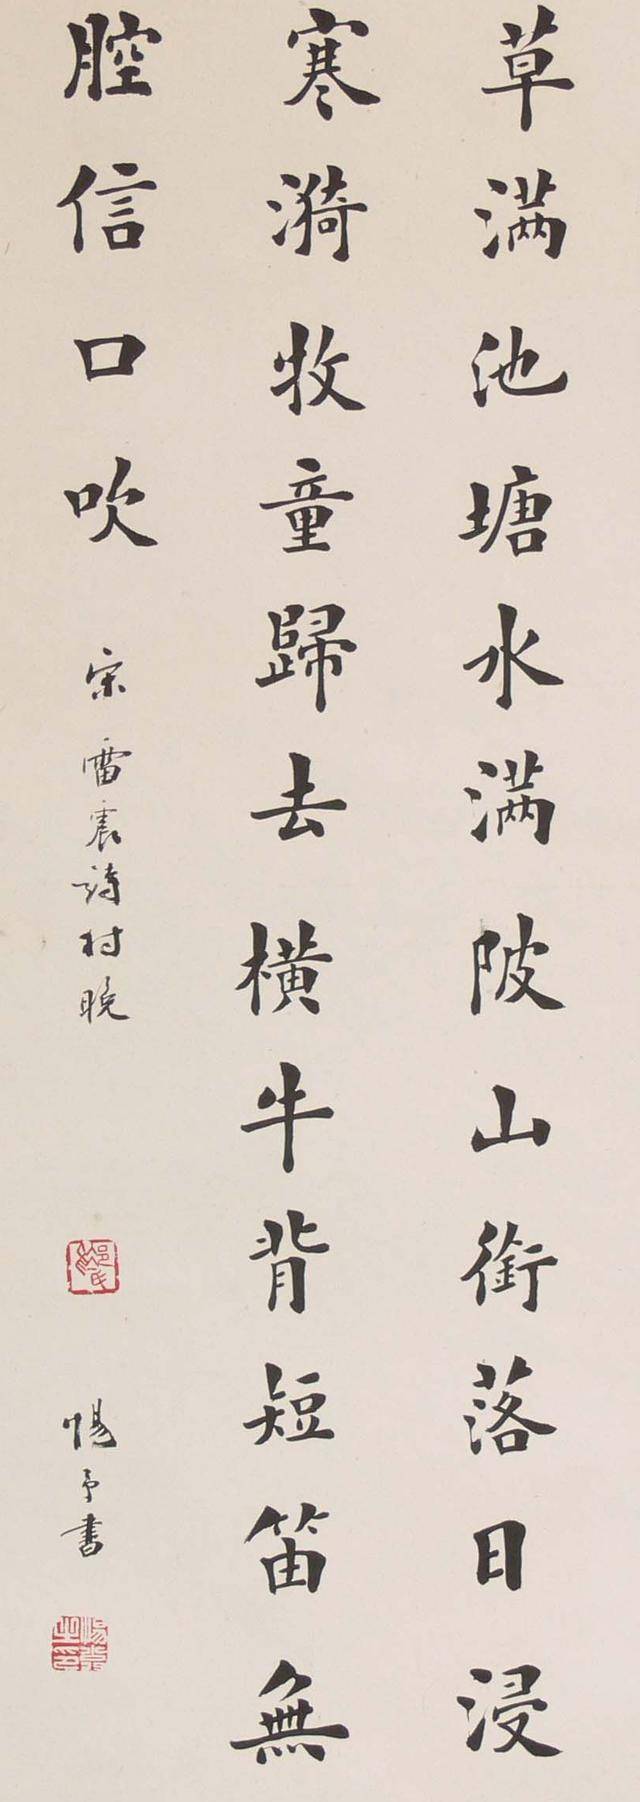 草满池塘水满陂山銜落日浸
寒漪牧童歸去橫牛背短笛無
腔信口吹
宋雷震詩村晚
惕予書